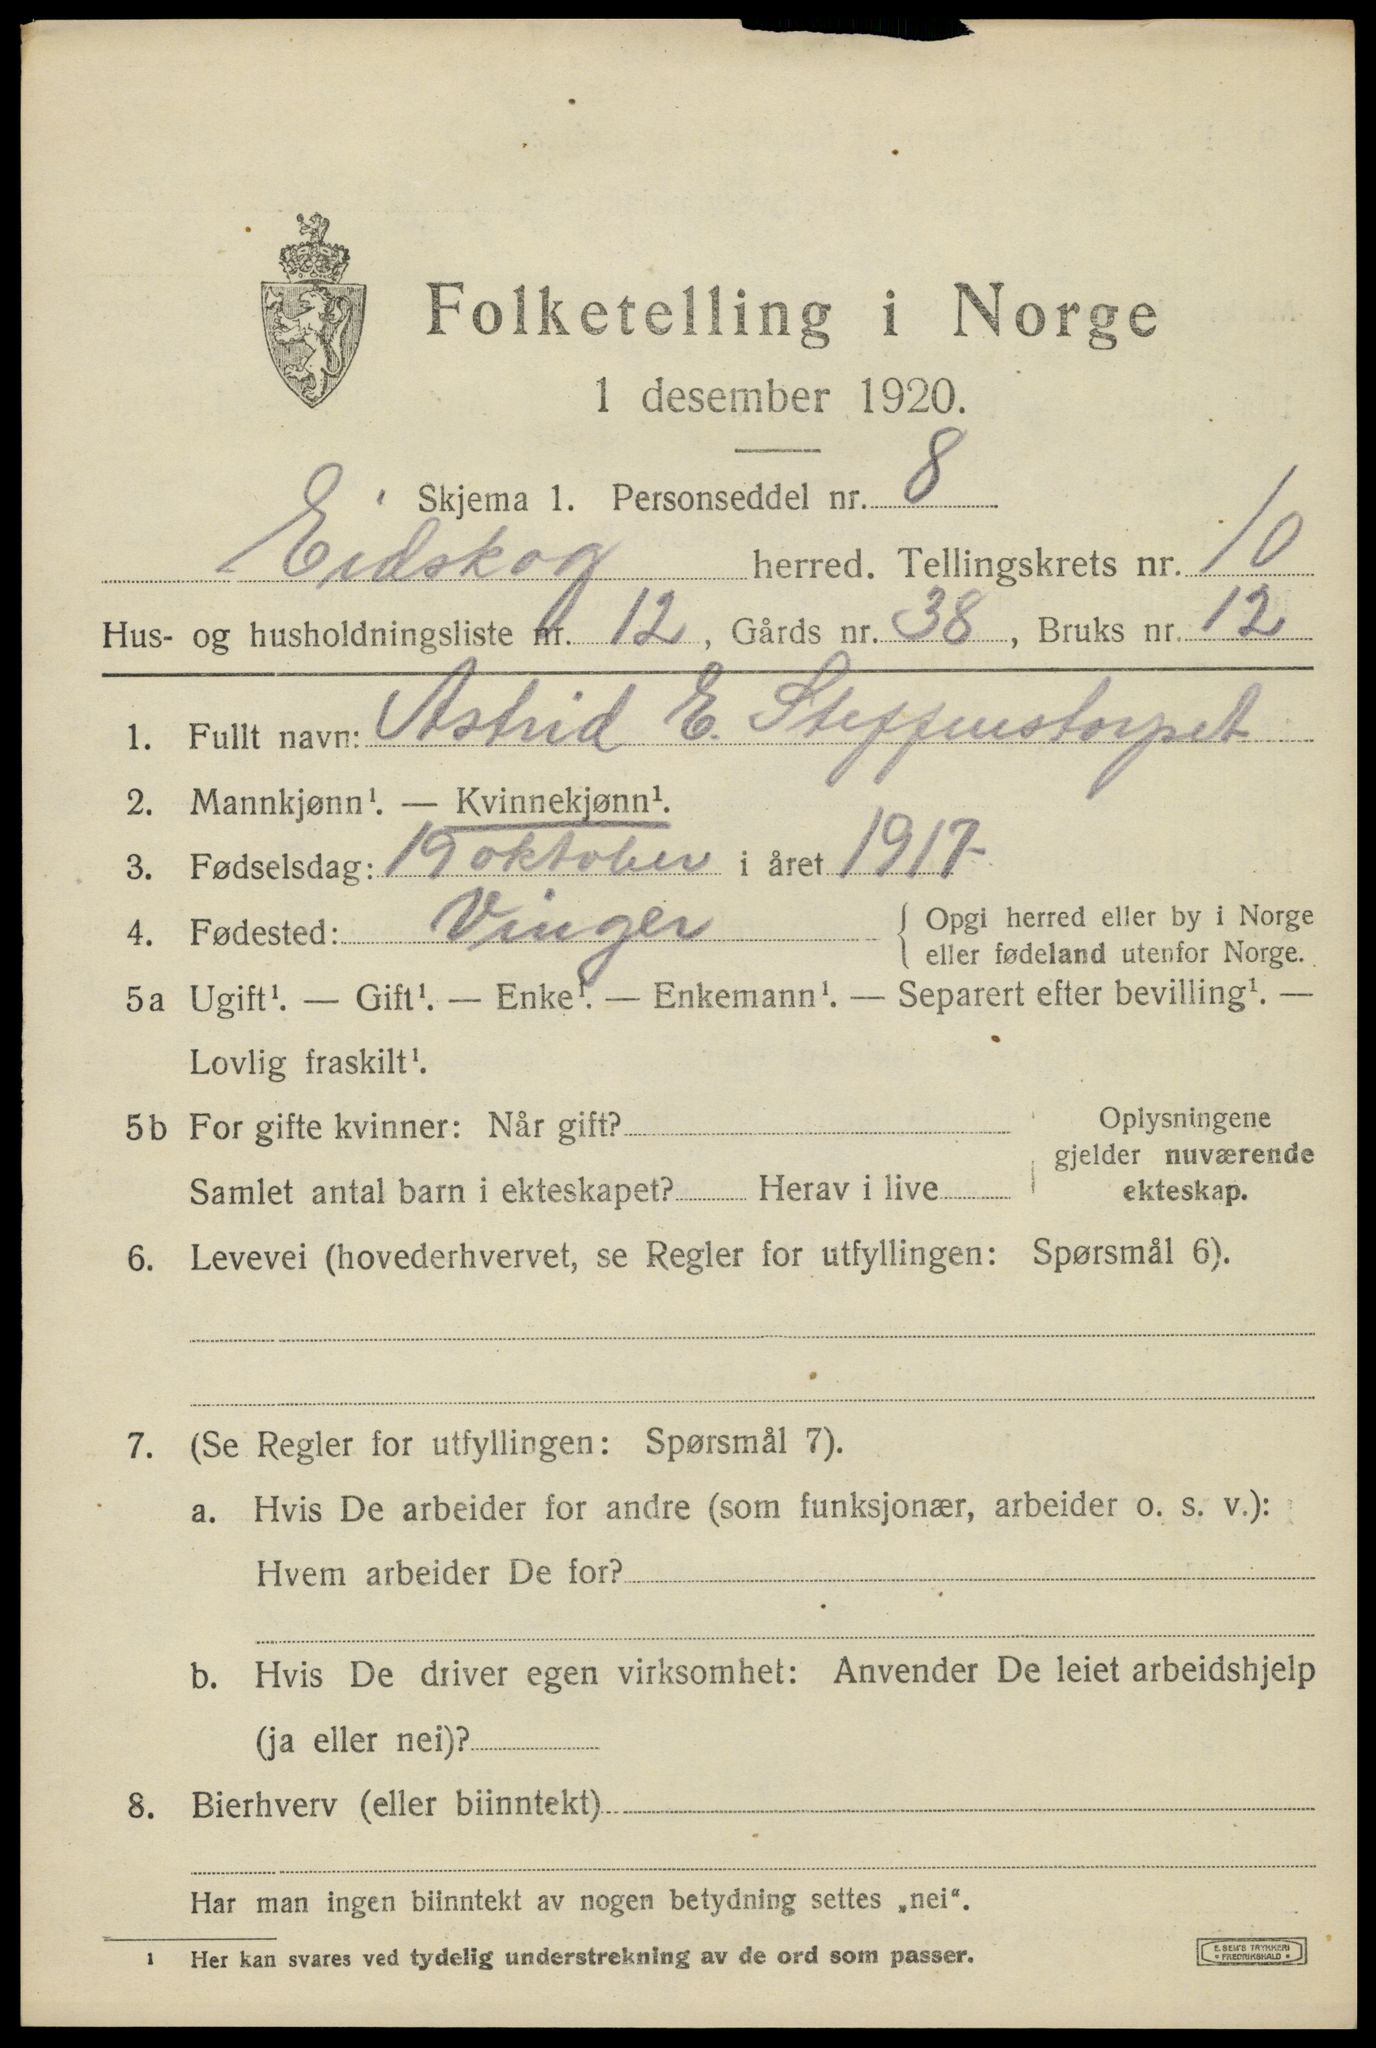 Folketelling i Norge
1 desember 1920.
Skjema 1. Personseddel nr. 8
Eidskog herred. Tellingskrets nr. 10
Hus- og husholdningsliste nr. 12, Gårds nr. 38, Bruks nr. 12
1. Fullt navn: Astrid E. Steffenstorpet
2. Mannkjønn¹. — Kvinnekjønn¹.
3. Fødselsdag: 19 oktober i året 1917
4. Fødested: Vinger { Opgi herred eller by i Norge
eller fødeland utenfor Norge.
5a Ugift¹. — Gift¹. — Enke¹. — Enkemann¹. — Separert efter bevilling¹. —
Lovlig fraskilt¹.
5b For gifte kvinner: Når gift?
Samlet antal barn i ekteskapet? Herav i live
Oplysningene
gjelder nuværende
ekteskap.
6. Levevei (hovederhvervet, se Regler for utfyllingen: Spørsmål 6).
7. (Se Regler for utfyllingen: Spørsmål 7).
a. Hvis De arbeider for andre (som funksjonær, arbeider o. s. v.):
Hvem arbeider De for?
b. Hvis De driver egen virksomhet: Anvender De leiet arbeidshjelp
(ja eller nei)?
8. Bierhverv (eller biinntekt)
Har man ingen biinntekt av nogen betydning settes „nei“.
1 Her kan svares ved tydelig understrekning av de ord som passer.
E. SEM'S TRYKKERI
* FREDRIKSHALD *